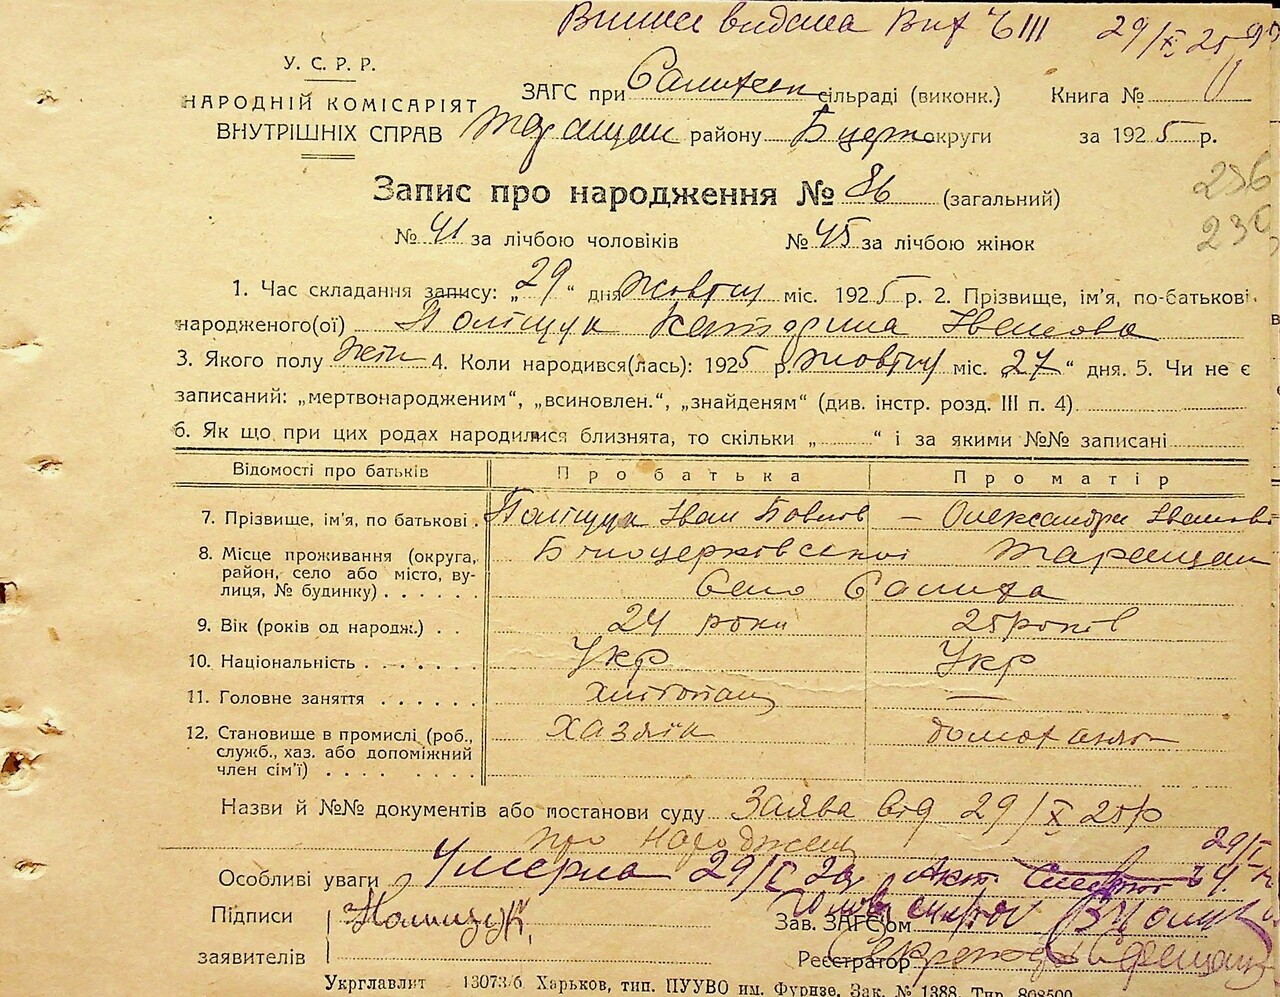 29/X 25 р
У. С. Р. Р.
НАРОДНІЙ КОМІСАРІЯТ
ВНУТРІШНІХ СПРАВ
ЗАГС при сільраді (виконк.) Книга №
району округи за 1925 р.
Запис про народження № 86 (загальний)
256
№ 41 за лічбою чоловіків № 45 за лічбою жінок
1. Час складання запису: „29“ дня жовтня міс. 1925 р. 2. Прізвище, ім'я, по-батькові
народженого(ої) Поліщук Катерина Іванова
3. Якого полу жін 4. Коли народився(лась): 1925 р. жовтня міс. „27“ дня. 5. Чи не є
записаний: „мертвонародженим“, „всиновлен.“, „знайденям“ (див. інстр. розд. III п. 4)
6. Як що при цих родах народилися близнята, то скільки „ “ і за якими №№ записані
Відомості про батьків Про батька Про матір
7. Прізвище, ім'я, по батькові. Поліщук Іван — Олександра Іванова
8. Місце проживання (округа, Білоцерківської Таращан
район, село або місто, ву- село
лиця, № будинку)
9. Вік (років од народж.) 24 роки 25 років
10. Національність Укр Укр
11. Головне заняття хлібопаш —
12. Становище в промислі (роб., хазяїн
служб., хаз. або допоміжний
член сім'ї)
Назви й №№ документів або постанови суду Заява від 29/X 25 р
про народжен
Особливі уваги Умерла Акт
Підписи Зав. ЗАГС'ом
заявителів Реєстратор
Укрглавлит 13073/б Харьков, тип. ПУУВО им. Фрунзе. Зак. № 1388. Тир. 808500